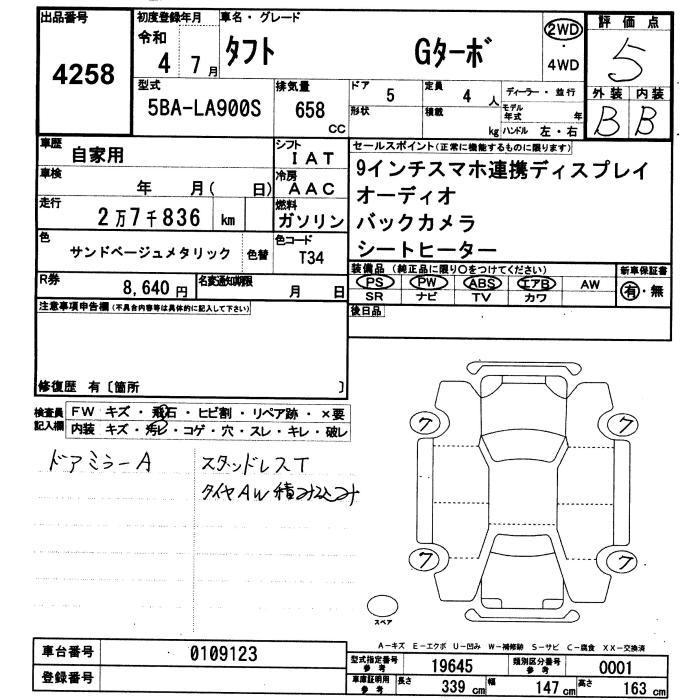 出品番号
4258
初度登録年月
令和
4 7月
車名・グレード
タフト Gターボ
2WD
・
4WD
評価点
5
外装 内装
B B
型式
5BA-LA900S
排気量
658
CC
ドア 5
形状
定員 4 人
積載 kg
ディーラー・並行
モデル年式 年
ハンドル 左・右
車歴
自家用
シフト
IAT
車検
年 月( 日)
冷房
AAC
走行
2万7千836 km
燃料
ガソリン
色
サンドベージュメタリック
色替
色コード
T34
セールスポイント(正常に機能するものに限ります)
9インチスマホ連携ディスプレイ
オーディオ
バックカメラ
シートヒーター
R券
8,640円
名変通知期限
月 日
装備品 (純正品に限り○をつけてください)
PS PW ABS エアB AW
SR ナビ TV カワ
新車保証書
有・無
後日品
注意事項申告欄(不具合内容等は具体的に記入して下さい)
修復歴 有〔箇所 〕
検査員
記入欄
FW キズ・飛石・ヒビ割・リペア跡・×要
内装 キズ・汚レ・コゲ・穴・スレ・キレ・破レ
ドアミラーA
スタッドレスT
タイヤAW積み込み
7 7
7 7
スペア
A-キズ E-エクボ U-凹み W-補修跡 S-サビ C-腐食 XX-交換済
車台番号 0109123
登録番号
型式指定番号
参考
19645
類別区分番号
参考
0001
車庫証明用
参考
長さ 339 cm 幅 147 cm 高さ 163 cm